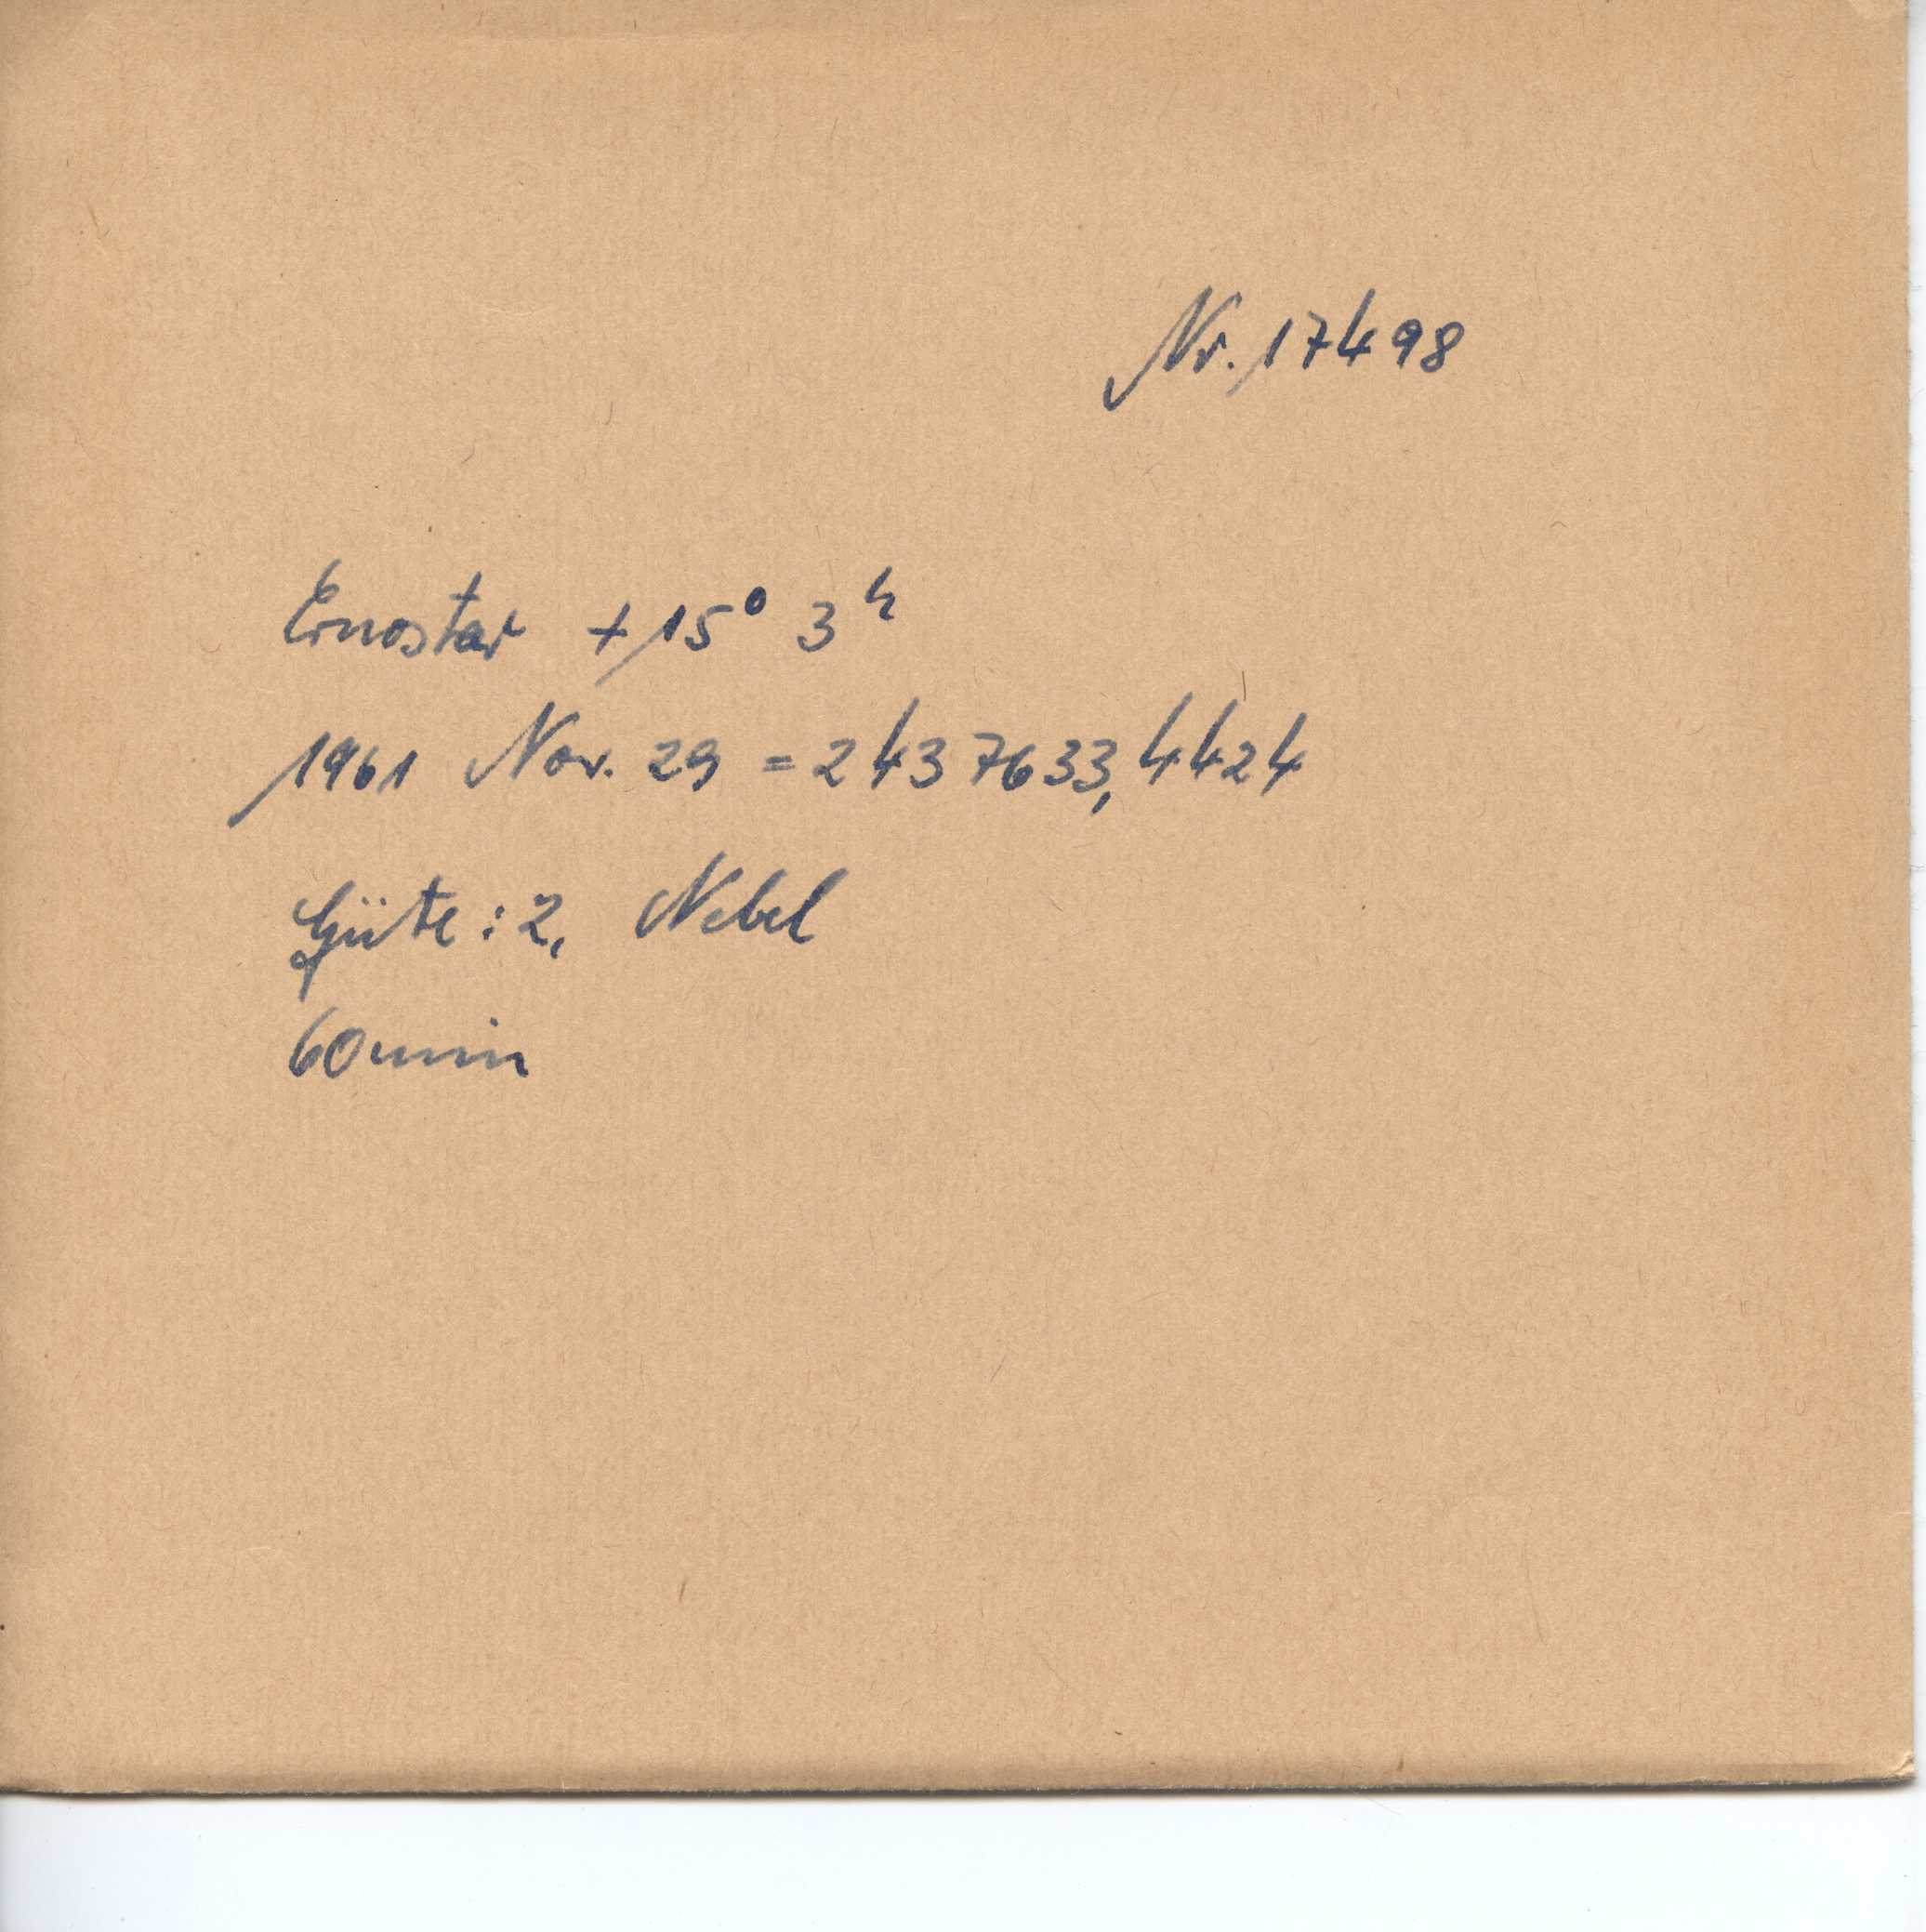 Nr. 17498
Ernostar +15° 3ʰ
1961 Nov. 29 = 243 7633,4424
Güte: 2, Nebel
60min